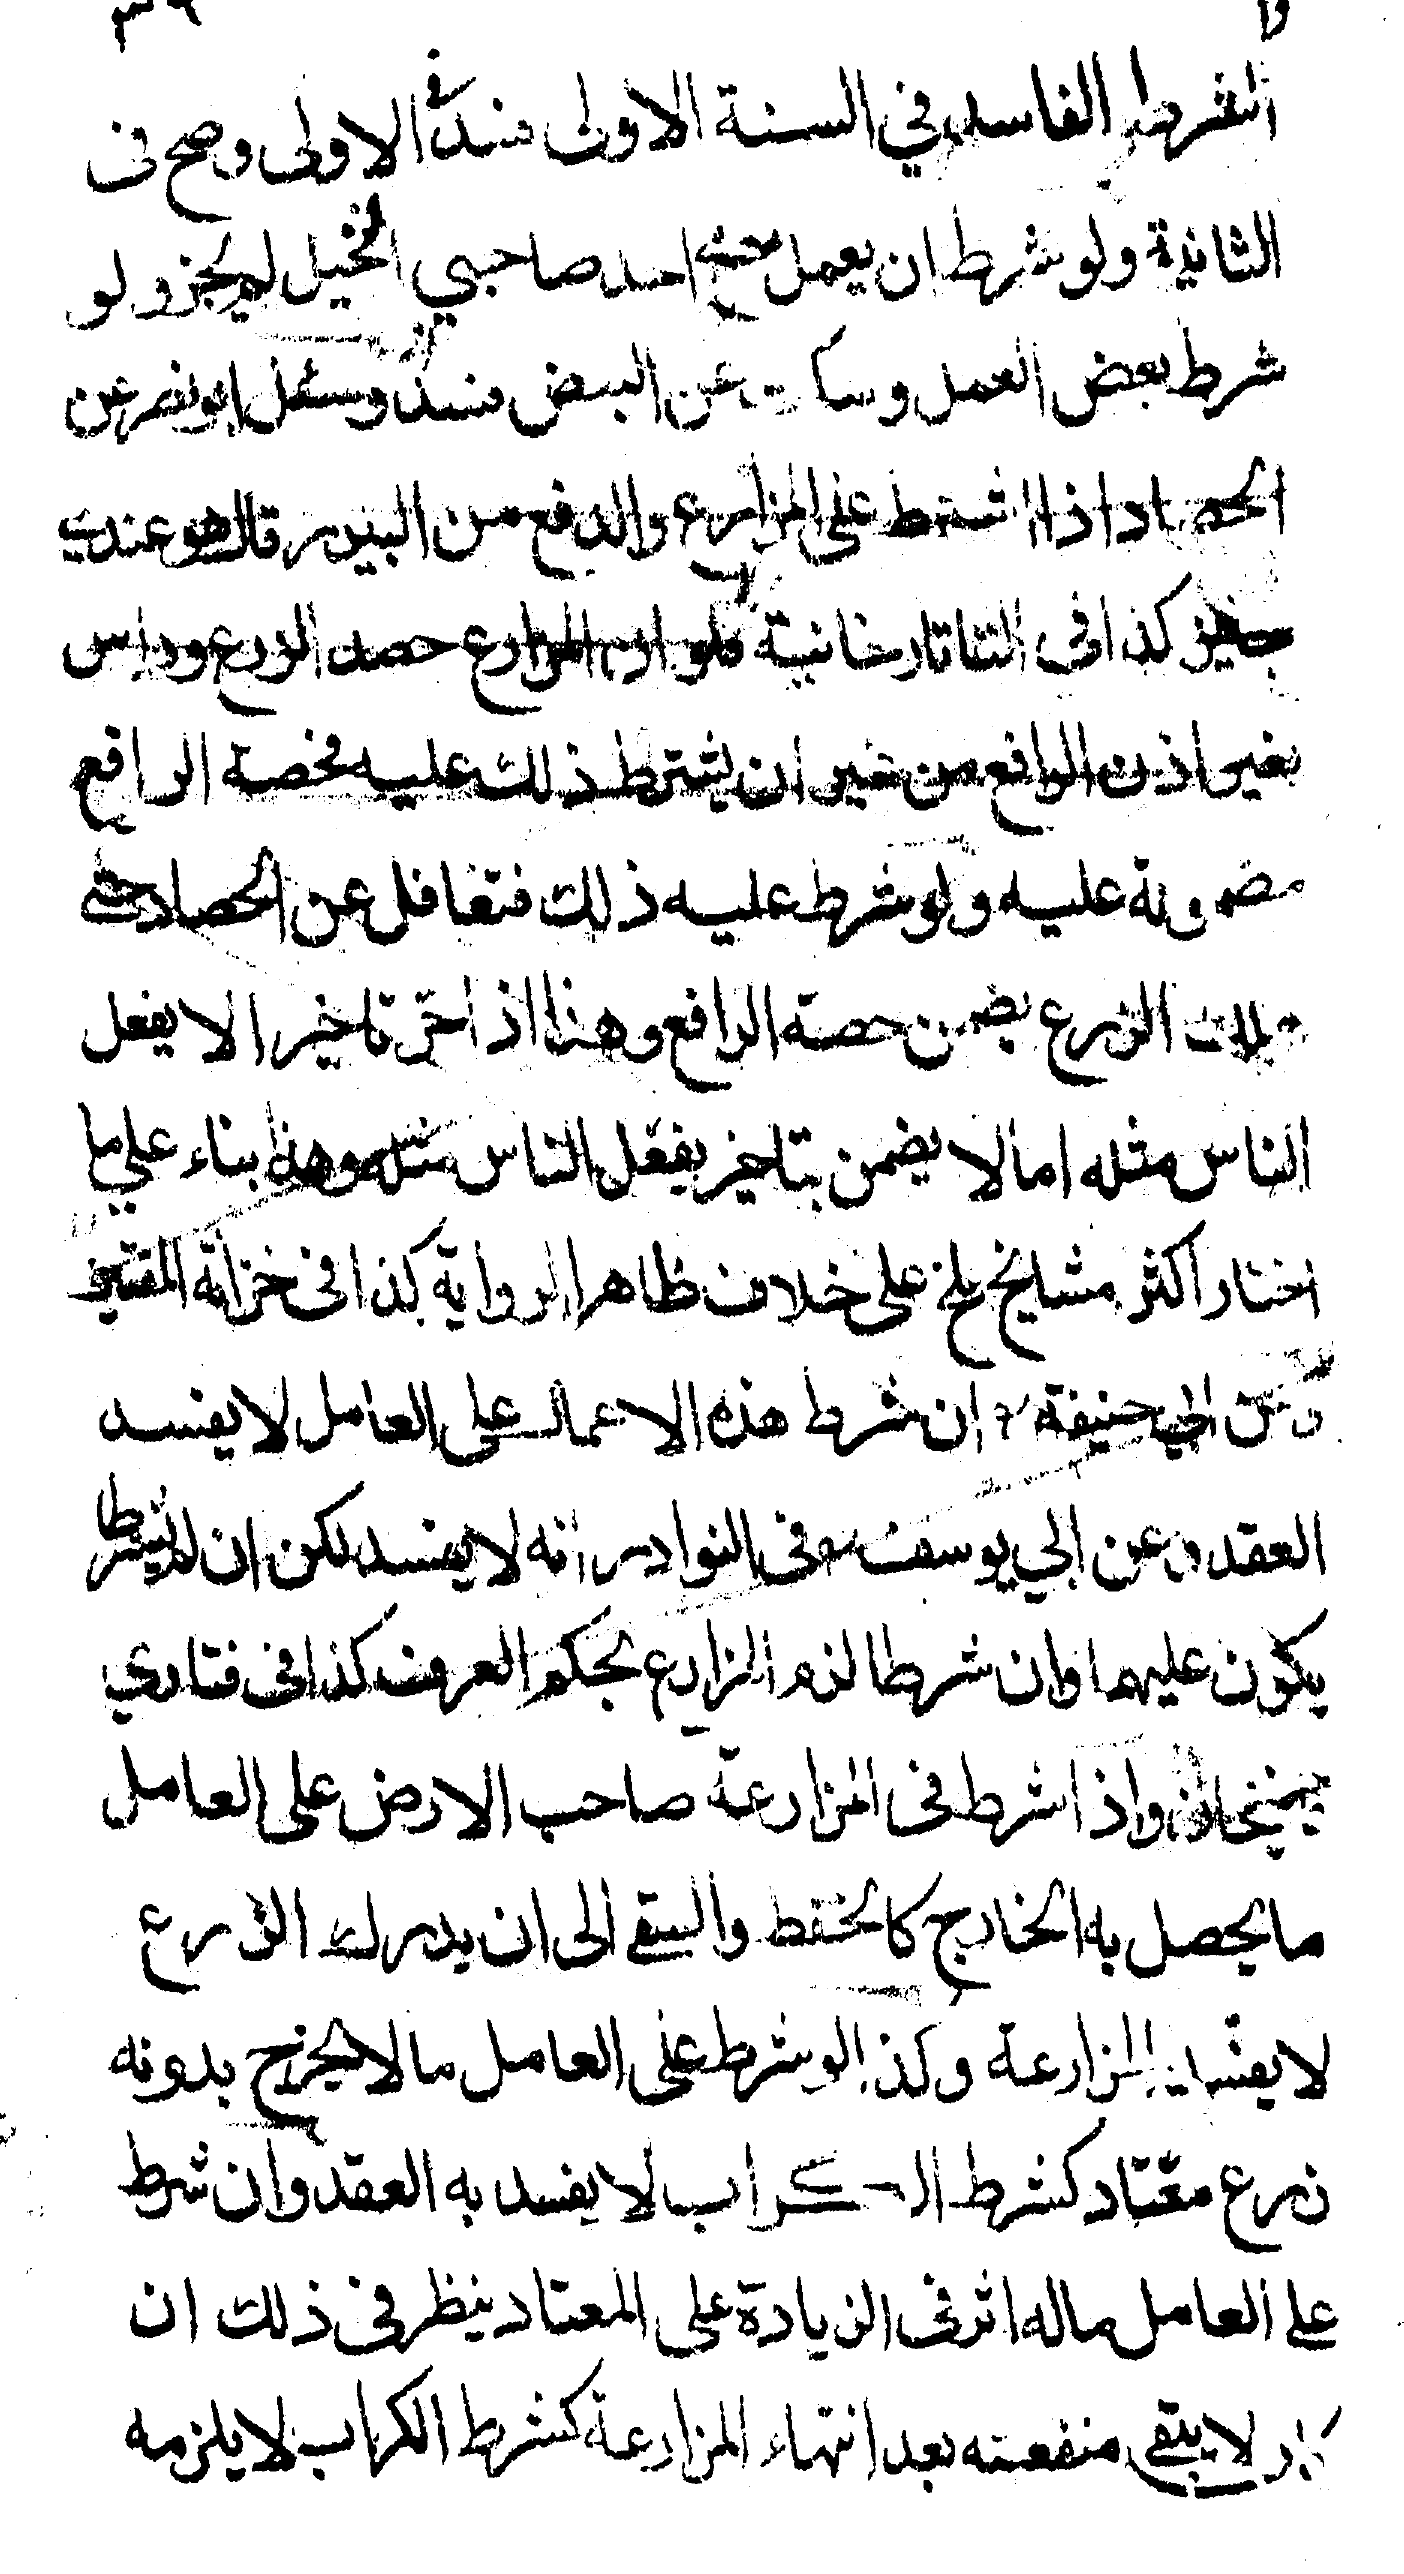 الشرط الفاسد في السنة الاولى فسدت الاولى وصح في
الثانية ولو شرط ان يعمل معه احد صاحبي النخيل لم يجز ولو
شرط بعض العمل وسكت عن البعض فسد وسئل ابو نصر عن
الحصاد اذا اشترط على المزارع والدفع من البيدر قال هو عندي
جائز كذا في التتاتارخانية فلو ان المزارع حصد الزرع وداس
بغير اذن الدافع من غير ان يشترط ذلك عليه فحصة الدافع
مضمونة عليه ولو شرط عليه ذلك فتغافل عن الحصاد حتى
هلك الزرع يضمن حصة الدافع وهذا اذ اخر تاخيرا لا يفعل
الناس مثله اما لا يضمن بتاخير يفعل الناس مثله وهذا بناء على ما
اختار اكثر مشايخ بلخ على خلاف ظاهر الرواية كذا في خزانة المفتين
وعن ابي حنيفة ان شرط هذه الاعمال على العامل لا يفسد
العقد وعن ابي يوسف في النوادر انه لا يفسد لكن ان لم يشرط
يكون عليهما وان شرطا لزم المزارع بحكم العرف كذا في فتاوي
قاضيخان واذا شرط في المزارعة صاحب الارض على العامل
ما يحصل به الخارج كالحفظ والسقي الى ان يدرك الزرع
لا يفسد المزارعة وكذا لو شرط على العامل ما لا يخرج بدونه
زرع معتاد كشرط الكراب لا يفسد به العقد وان شرط
على العامل ماله اثر في الزيادة على المعتاد ينظر في ذلك ان
كان لا يبقى منفعته بعد انتهاء المزارعة كشرط الكراب لا يلزمه